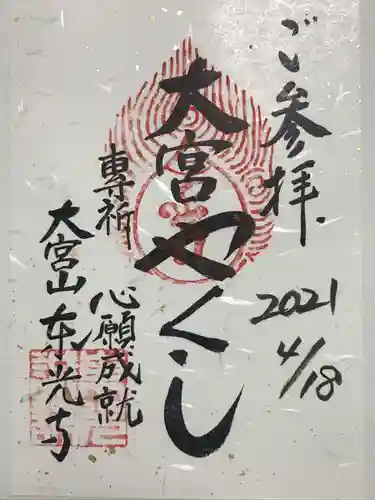 ご参拝
2021
4/18
大宮やくし
専祈
心願成就
大宮山东光寺